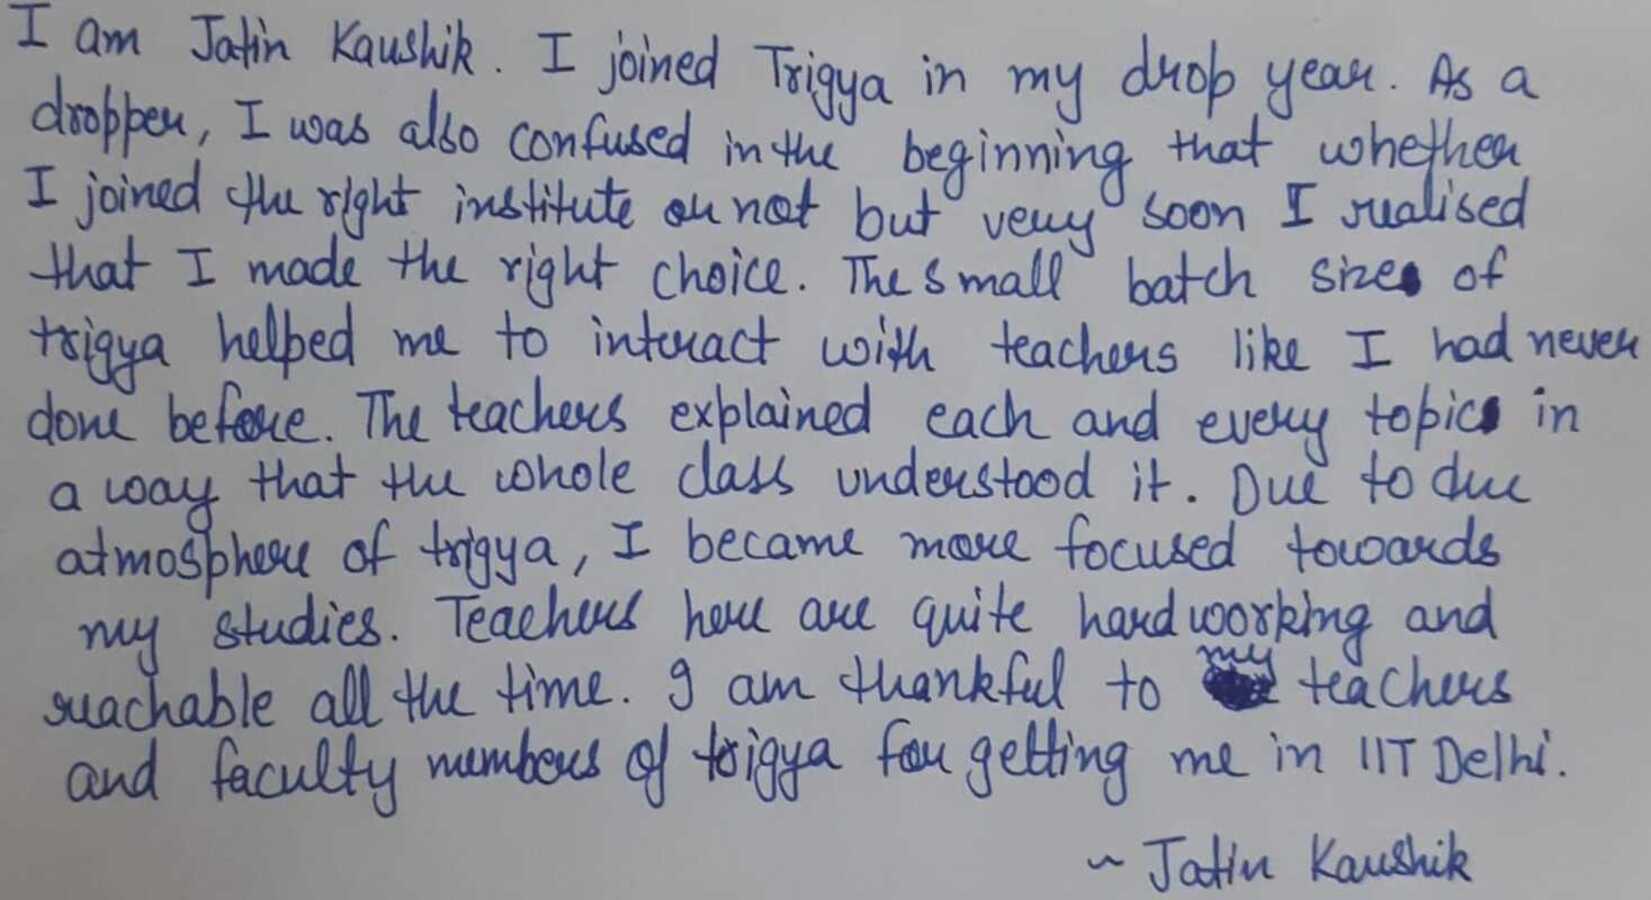 I am Jatin Kaushik. I joined Trigya in my drop year. As a
dropper, I was also confused in the beginning that whether
I joined the right institute or not but very soon I realised
that I made the right choice. The small batch sizes of
trigya helped me to interact with teachers like I had never
done before. The teachers explained each and every topics in
a way that the whole class understood it. Due to due
atmosphere of trigya, I became more focused towards
my studies. Teachers here are quite hard working and
reachable all the time. I am thankful to my teachers
and faculty members of trigya for getting me in IIT Delhi.
~ Jatin Kaushik